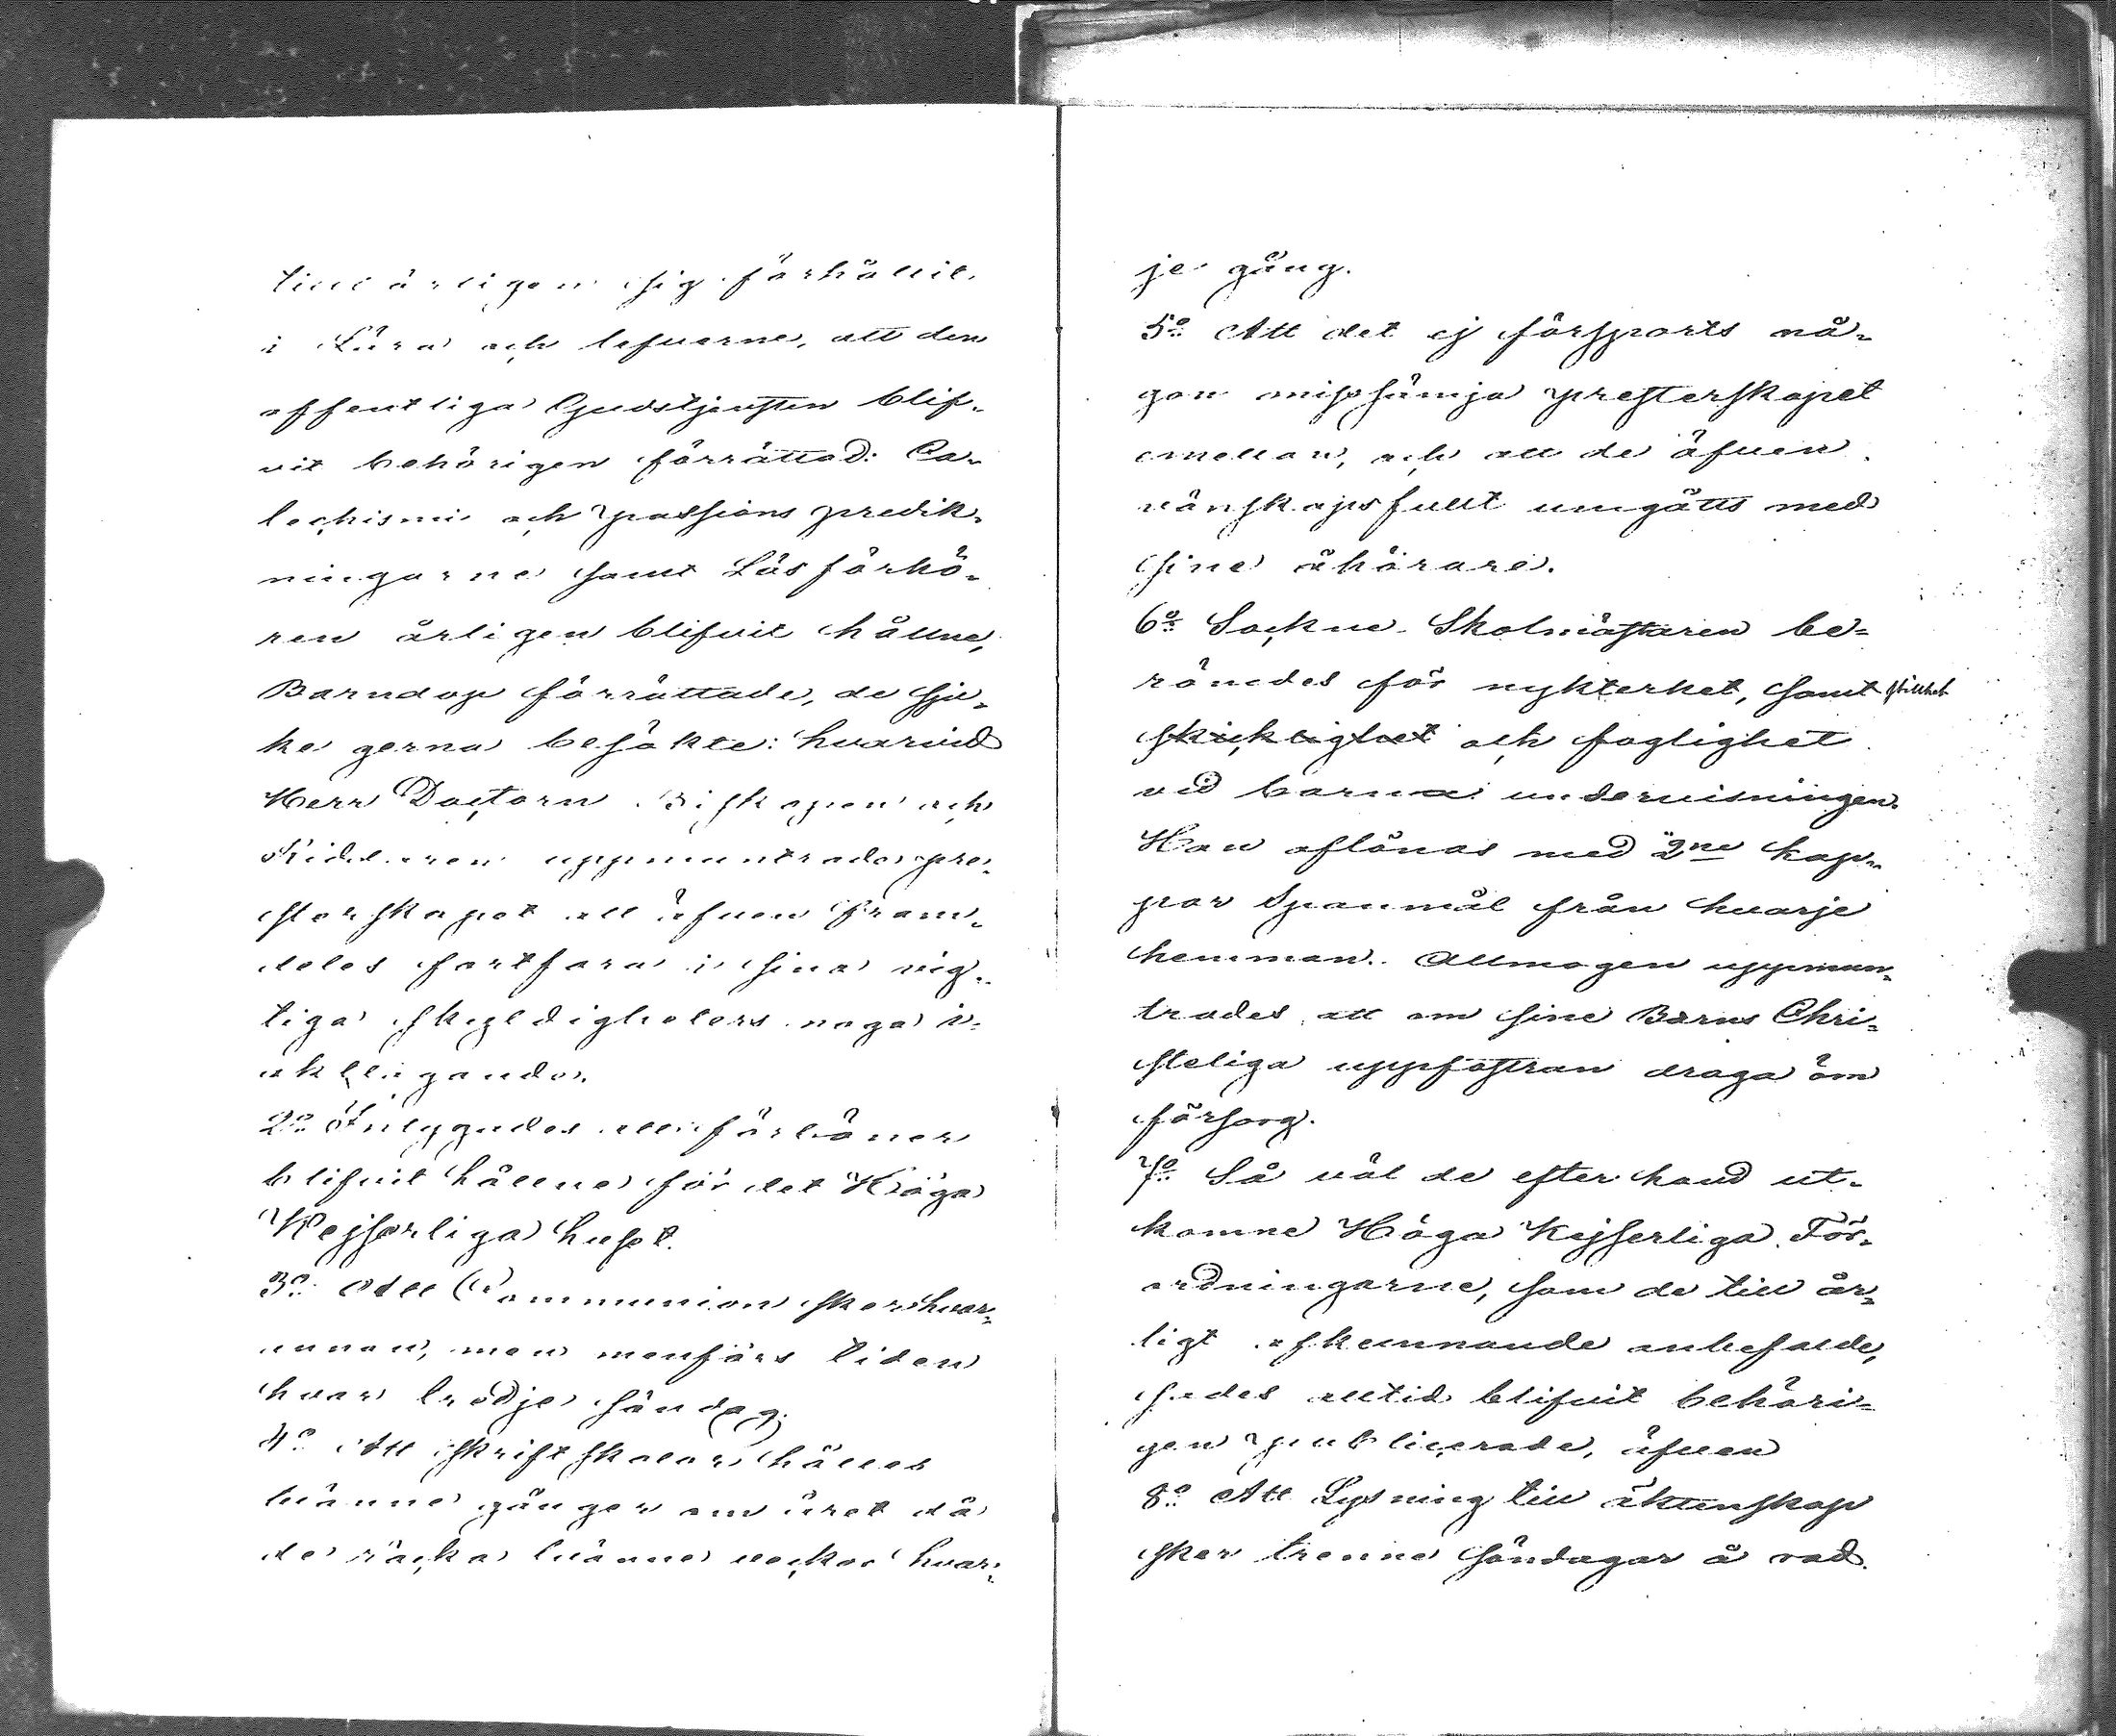 tienl ärligen sig förhållit
i Lära och lefverne, att den
offentliga Gudstjensten blif-
vit behörigen förrättad: Ca-
techismi och passions predik-
ningarne samt Läsförhö-
ren årligen blifvit hållne,
Barndop förrättade, de sju-
ke gerna besökte: hvarvid
Herr Doctorn Biskopen och
Riddaren uppmuntrade pre-
sterskapet att äfven fram-
deles fortfara i sina vig-
tiga skyldigheters noga i-
akttagande.
2:o Intygades att förböner
blifvit hållne för det Höga
Kejserliga huset.
3:o Att Communion sker hvar-
annan, men menföres tiden
hvar tredje söndag.
4:o Att skriftskolor hålles
tvänne gånger om året då
de räcka tvänne veckor hvar-
je gång.
5:o Att det ej försports nå-
gon missämja presterskapet
emellan, och att de äfven
vänskapsfullt umgåtts med
sine åhörare.
6:o Sockne Skolmästaren be-
römdes för nykterhet, samt stillhet
skicklighet och foglighet
vid barna undervisningen.
Han aflönas med 2ne kap-
par Spanmål från hvarje
hemman. Allmogen uppmun-
trades att om sine Barns Chri-
steliga uppfostran draga öm
försorg.
7:o Så väl de efter hand ut-
komne Höga Kejserliga För-
ordningarne, som de till år-
ligt afkunnande anbefalde,
hades alltid blifvit behöri-
gen publicerade, äfven
8:o Att Lysning till äktenskap
sker trenne söndagar å rad.